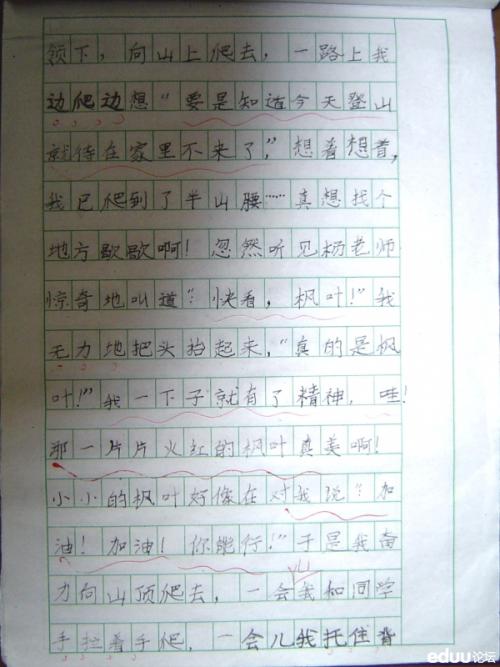 领下，向山上爬去，一路上我
边爬边想“要是知道今天登山
就待在家里不来了，”想着想着，
我已爬到了半山腰……真想找个
地方歇歇啊！忽然听见杨老师
惊奇地叫道：“快看，枫叶！”我
无力地把头抬起来，“真的是枫
叶！”我一下子就有了精神，哇！
那一片片火红的枫叶真美啊！
小小的枫叶好像在对我说：“加
油！加油！你能行！”于是我奋
力向山顶爬去，一会儿我和同学
手拉着手爬，一会儿我托住背
eduu论坛